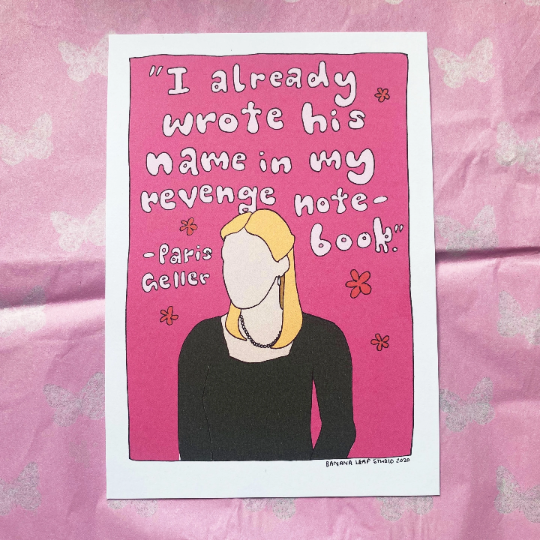 "I already
wrote his
name in my
revenge note-
book."
-Paris
Geller
BANANA LEAF STUDIO 2020